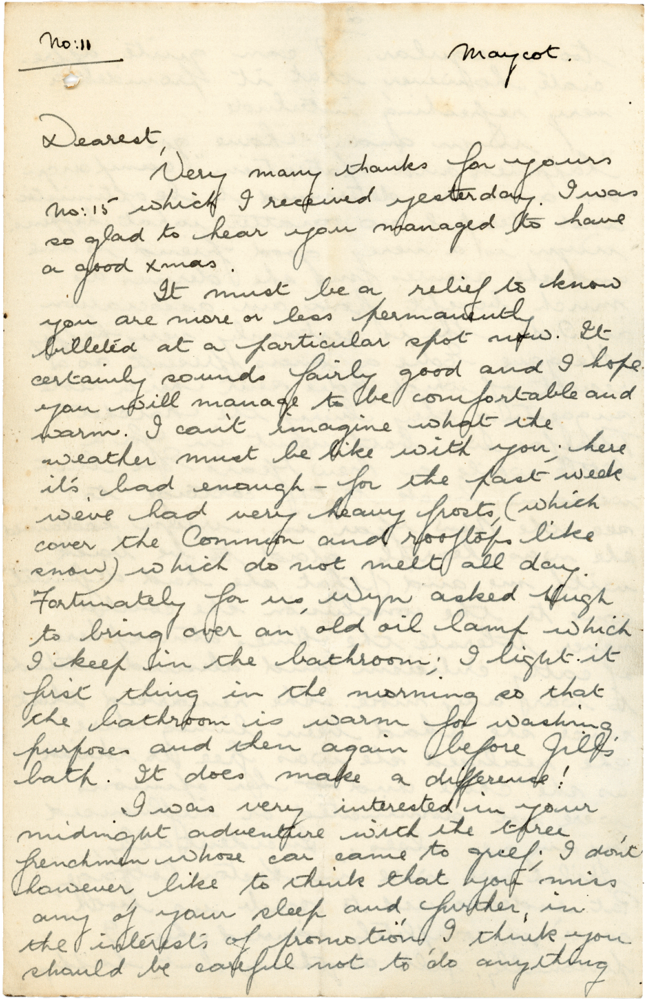 No: 11
Maycot.
Dearest,
Very many thanks for yours
No: 15 which I received yesterday. I was
so glad to hear you managed to have
a good xmas.
It must be a relief to know
you are more or less permanently
billeted at a particular spot now. It
certainly sounds fairly good and I hope
you will manage to be comfortable and
warm. I can't imagine what the
weather must be like with you; here
it's bad enough – for the past week
we've had very heavy frosts, (which
cover the Common and rooftops like
snow) which do not melt all day.
Fortunately for us Wyn asked Hugh
to bring over an old oil lamp which
I keep in the bathroom; I light it
first thing in the morning so that
the bathroom is warm for washing
purposes and then again before Jill's
bath. It does make a difference!
I was very interested in your
midnight adventure with the three
frenchmen whose car came to grief; I don't
however like to think that you miss
any of your sleep and further, in
the interests of promotion I think you
should be careful not to do anything